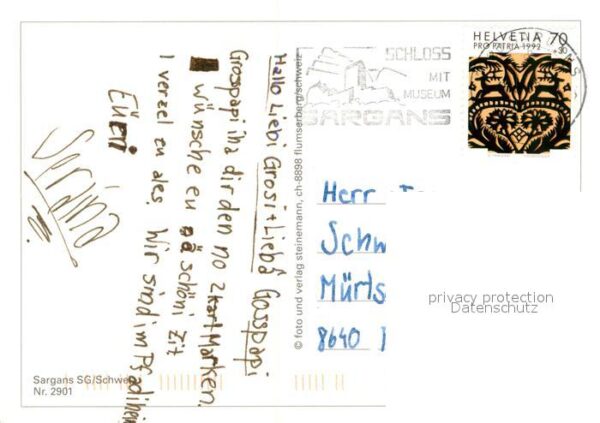 HELVETIA 70
PRO PATRIA 1992 +30
SCHLOSS
MIT
MUSEUM
SARGANS
Hallo Liebi Grosi + Liebä Gosspäpi
Grosspapi iha dir den no 2 kart Marken.
wünsche eu ä schöni Zit
I verzel eu äles. Wir sind im Pfadiheim
Eüeri
Sarina
© foto und verlag steinemann, ch-8898 flumserberg/schweiz
Herr
Schw
Mürts
8640
privacy protection
Datenschutz
Sargans SG/Schweiz
Nr. 2901